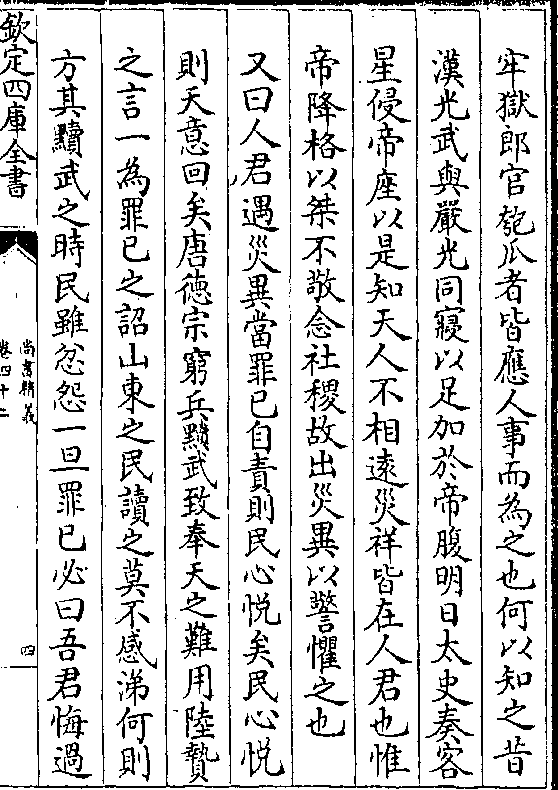 牢獄郎官匏瓜者皆應人事而為之也何以知之昔
漢光武與嚴光同寢以足加於帝腹明日太史奏客
星侵帝座以是知天人不相逺災祥皆在人君也惟
帝降格以桀不敬念社稷故出災異以警懼之也
又曰人君遇災異當罪已自責則民心悦矣民心悦
則天意回矣唐徳宗窮兵黷武致奉天之難用陸贄
之言一為罪已之詔山東之民讀之莫不感涕何則
方其黷武之時民雖忿怨一旦罪已必曰吾君悔過
欽定四庫全書
尚書精義
卷四十二
四